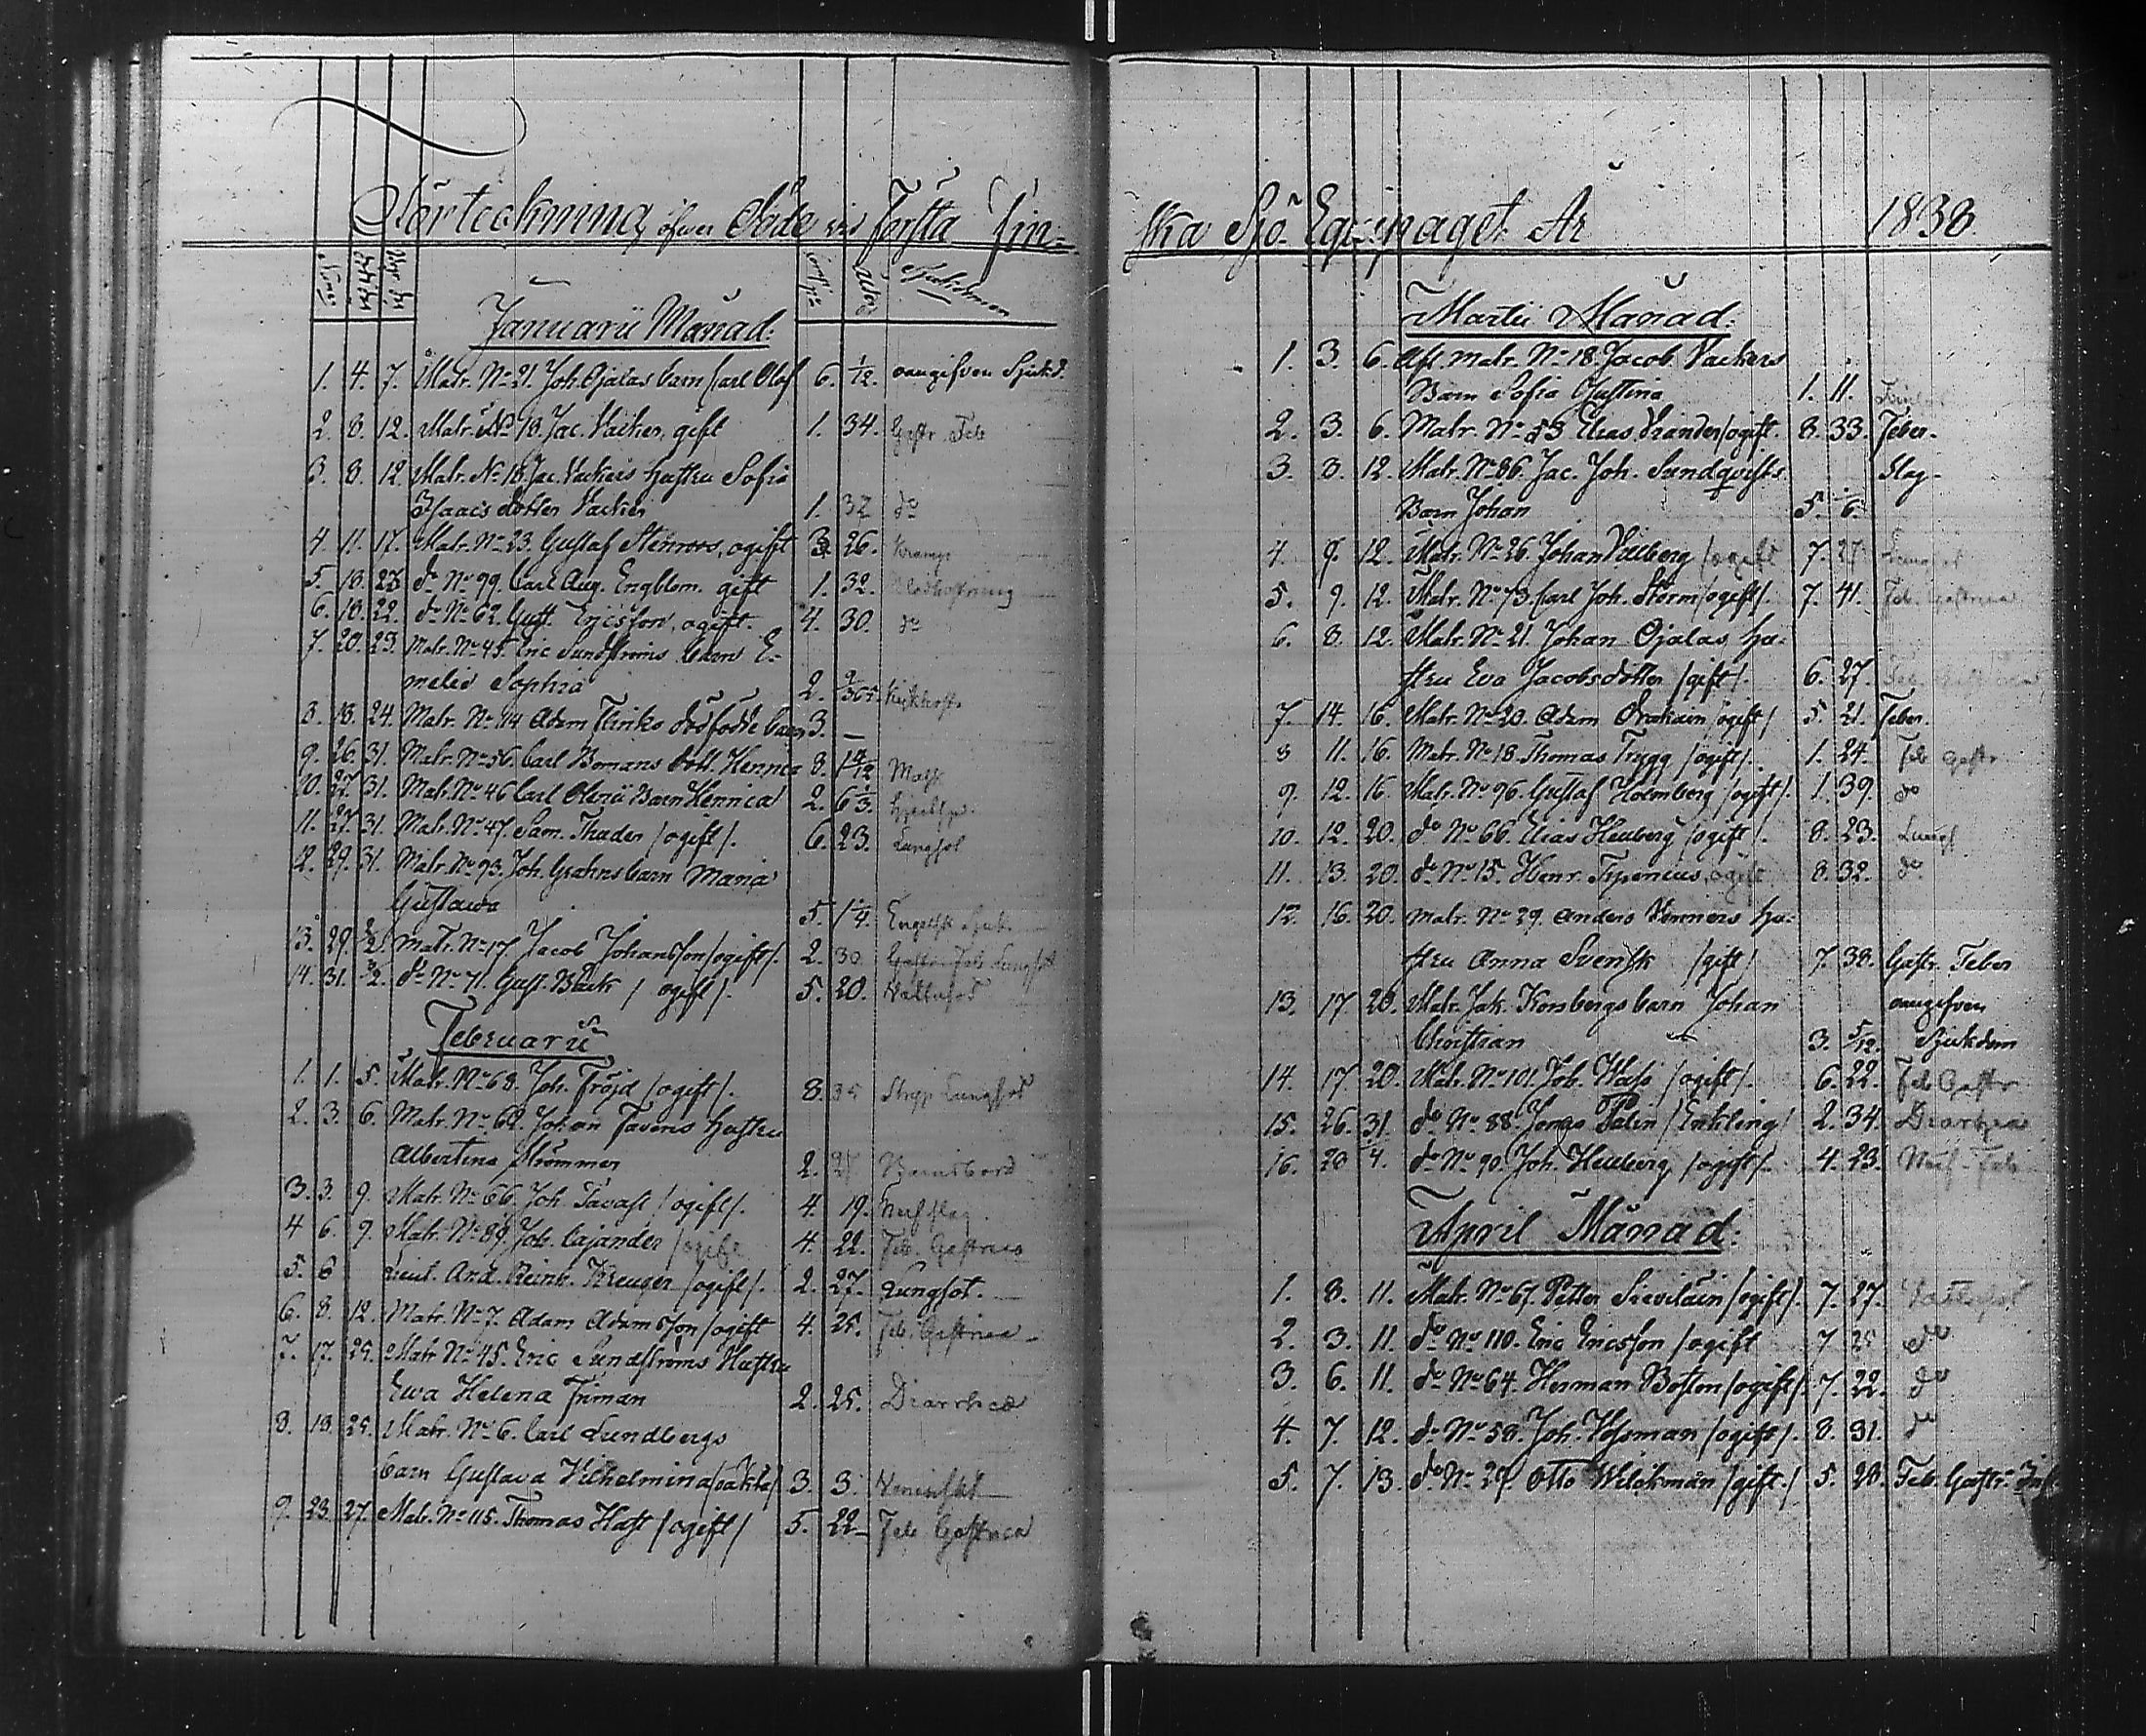 Förteckning öfwer Döde vid Första Fin-
Januarii Månad:
1. 4. 7. Matr. No 21. Joh. Ojalas barn Carl Olof 6. 1/12. oangifven Sjukd.
2. 8. 12. Matr. No 18. Jac. Vacker, gift 1. 34. Gastr. Feb
3. 8. 12. Matr. No 18. Jac. Vackers hustru Sofia
Isaacs dotter Vacker 1. 32 do
4. 11. 17. Matr. No 23. Gustaf Stenroos, ogift 3. 26. Kramp
5. 18. 23 do No 99. Carl Aug. Engblom. gift 1. 32. Blodhostning
6. 18. 22. do No 62. Gust. Ericsson, ogift. 4. 30. do
7. 20. 23. Matr. No 45. Eric Sundströms barn E-
melie Sophia 2. 9/365. Kikhosta
8. 18. 24. Matr. No 114 Adam Flinks dödfödde barn 3. —
9. 26. 31. Matr. No 56. Carl Bomans dott. Henrica 8. Mask
10. 27. 31. Matr. No 46 Carl Olenii Barn Henrica 2. 6 1/3.
11. 27. 31. Matr. No 47. Sam. Thuder /ogift/. 6. 23. Lungsot
12. 29. 31. Matr. No 93. Joh. Grahns barn Maria
Gustava 5. 1 1/4. Engelsk sjuk.
13. 29. 2/2. Matr. No 17. Jacob Johansson /ogift/. 2. 30 Gastr. Feb Lungsot
14. 31. 3/2. do No 71. Gust. Bäck /ogift/. 5. 20. Vattusot
Februarii
1. 1. 5. Matr. No 68. Joh. Fröjd /ogift/. 8. 35 Lungsot
2. 3. 6. Matr. No 62. Johan Favens hustru
Albertina Strömmer 2. 27 Barnsbörd
3. 3. 9. Matr. No 66. Joh. Tavast /ogift/. 4. 19. Nerfslag.
4 6 9. Matr. No 89. Joh. Cajander /ogift 4. 22. Feb. Gastrica
5. 6 Lieut. And. Reinh. Kreuger /ogift/. 2. 27. Lungsot.
6. 8. 12. Matr. No 7. Adam Adamsson /ogift 4. 25. Feb. Gastrica
7. 17. 25. Matr No 45. Eric Sundströms Hustru
Ewa Helena Friman 2. 25. Diarrhoea
8. 18. 25. Matr. No 6. Carl Lundbergs
barn Gustava Vilhelmina /oäkta/ 3. 3.
9. 23. 27. Matr. No 115. Thomas Hast /ogift/ 5. 22 Feb Gastrica
ska Sjö-Equipaget År 1838.
Martii Månad:
1. 3. 6. Afl. matr. No 18. Jacob Vackers
Barn Sofia Gustina 1. 11.
2. 3. 6. Matr. No 53 Elias Vrander /ogift. 8. 33. Feber.
3. 8. 12. Matr. No 86. Jac. Joh. Sundqvists Slag.
Barn Johan 5. 6.
4. 9. 12. Matr. No 26. Johan Villberg /ogift 7. 27 Lungsot
5. 9. 12. Matr. No 73. Carl Joh. Storm /ogift/. 7. 41. Feb. Gastrica
6. 8. 12. Matr. No 21. Johan Ojalas hu-
stru Eva Jacobsdotter /gift/. 6. 27. Feb. Gastrica
7. 14. 16. Matr. No 20. Adam Drakain /ogift/ 5. 21. Feber.
8 11. 16. Matr. No 18. Thomas Trygg /ogift/. 1. 24. Feb Gastr.
9. 12. 16. Matr. No 96. Gustaf Holmberg /ogift/. 1. 39. do
10. 12. 20. do No 66. Elias Heuberg /ogift/. 8. 23. Lungs.
11. 13. 20. do No 15. Henr. Typenius, ogift 8. 32. do
12. 16. 20. Matr. No 29. Anders Vänners hu-
stru Anna Svensk /gift/ 7. 38. Gastr. Feber
13. 17. 20. Matr. Jak. Korsbergs barn Johan oangifven
Christian 3. 5/12. Sjukdom
14. 17. 20. Matr. No 101. Joh. Wass /ogift/. 6. 22. Feb Gastr
15. 26. 31. do No 88. Jonas Palin /Enkling/ 2. 34. Diarrhea
16. 28 4. do No 90. Joh. Heuberg, /ogift/. 4. 23. Nerf-Feb
April Månad:
1. 3. 11. Matr. No 67. Petter Sieviläin /ogift/. 7. 27. Vattusot
2. 3. 11. do No 110. Eric Ericsson /ogift 7 25 do
3. 6. 11. do No 64. Herman Boston /ogift/ 7. 22. do
4. 7. 12. do No 58. Joh. Vossman /ogift/. 8. 31. do
5. 7. 13. do No 29. Otto Welckman /gift./ 5. 28. Feb. Gastr.